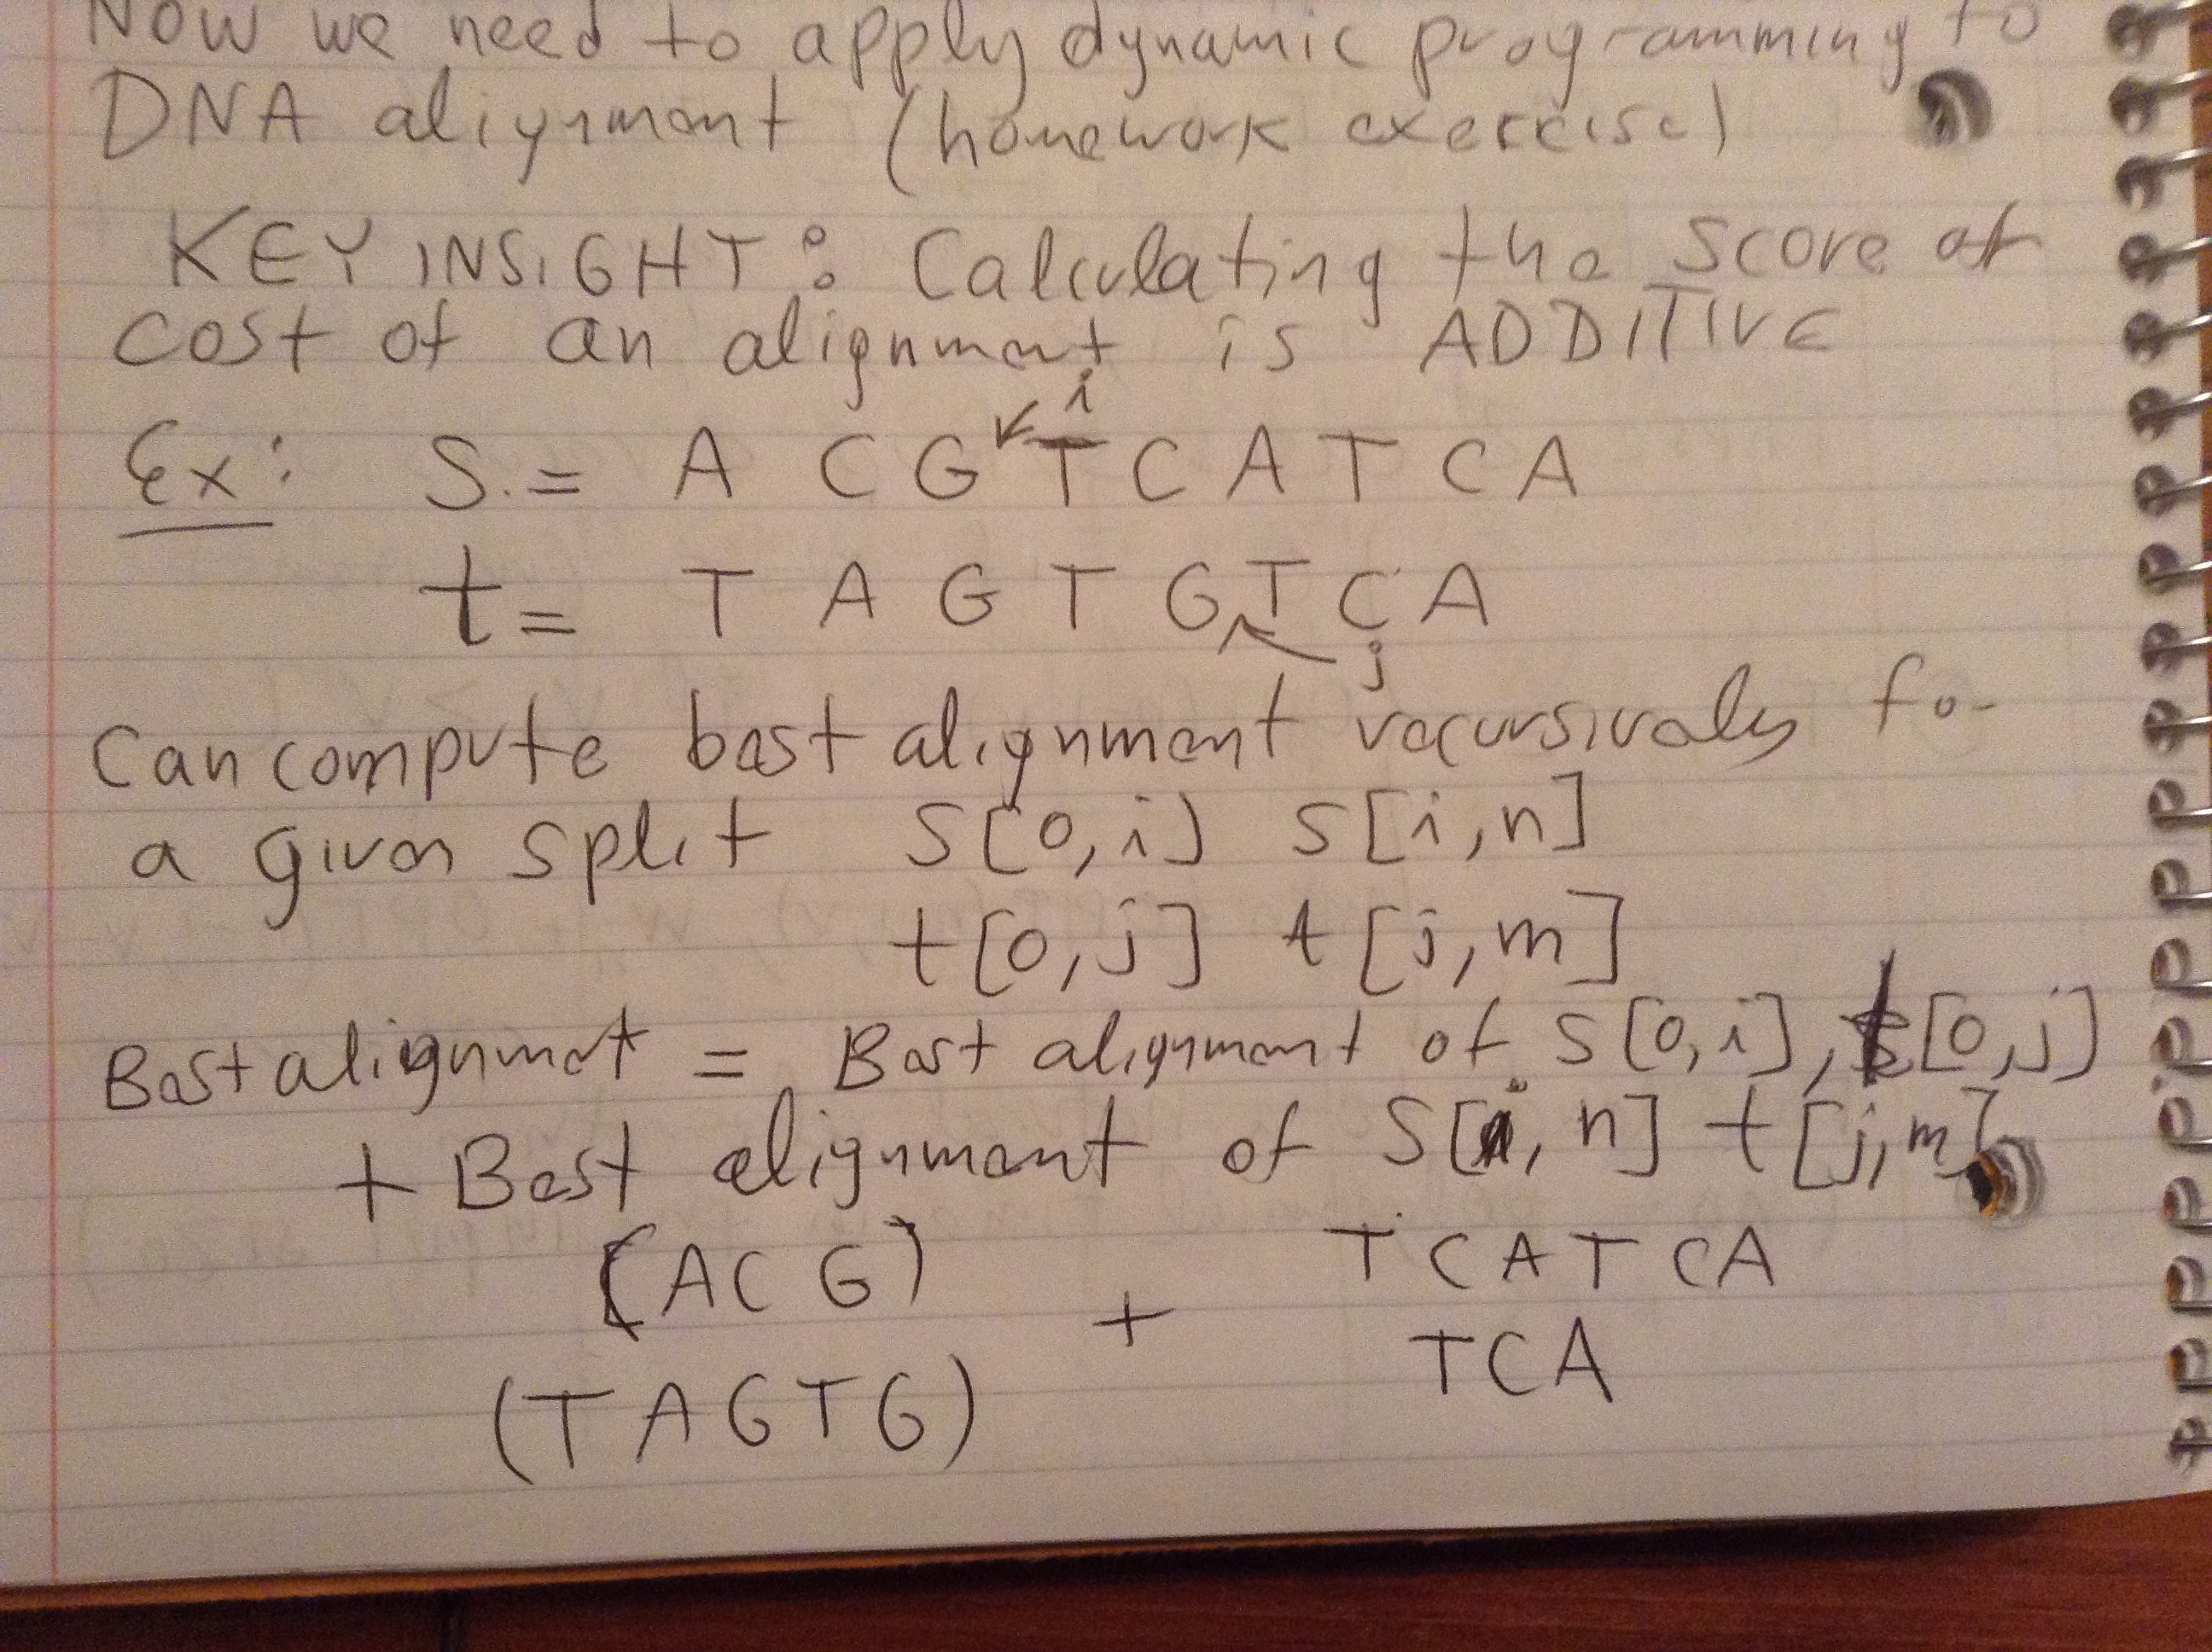 Now we need to apply dynamic programming to
DNA alignment (homework exercise)
KEY INSIGHT: Calculating the score or
cost of an alignment is ADDITIVE
i
Ex: S = A C G T C A T C A
t = T A G T G T C A
j
Can compute best alignment recursively for
a given split S[0,i] S[i,n]
t[0,j] t[j,m]
Best alignment = Best alignment of S[0,i], t[0,j]
+ Best alignment of S[i,n] t[j,m]
(ACG) TCATCA
+
(TAGTG) TCA